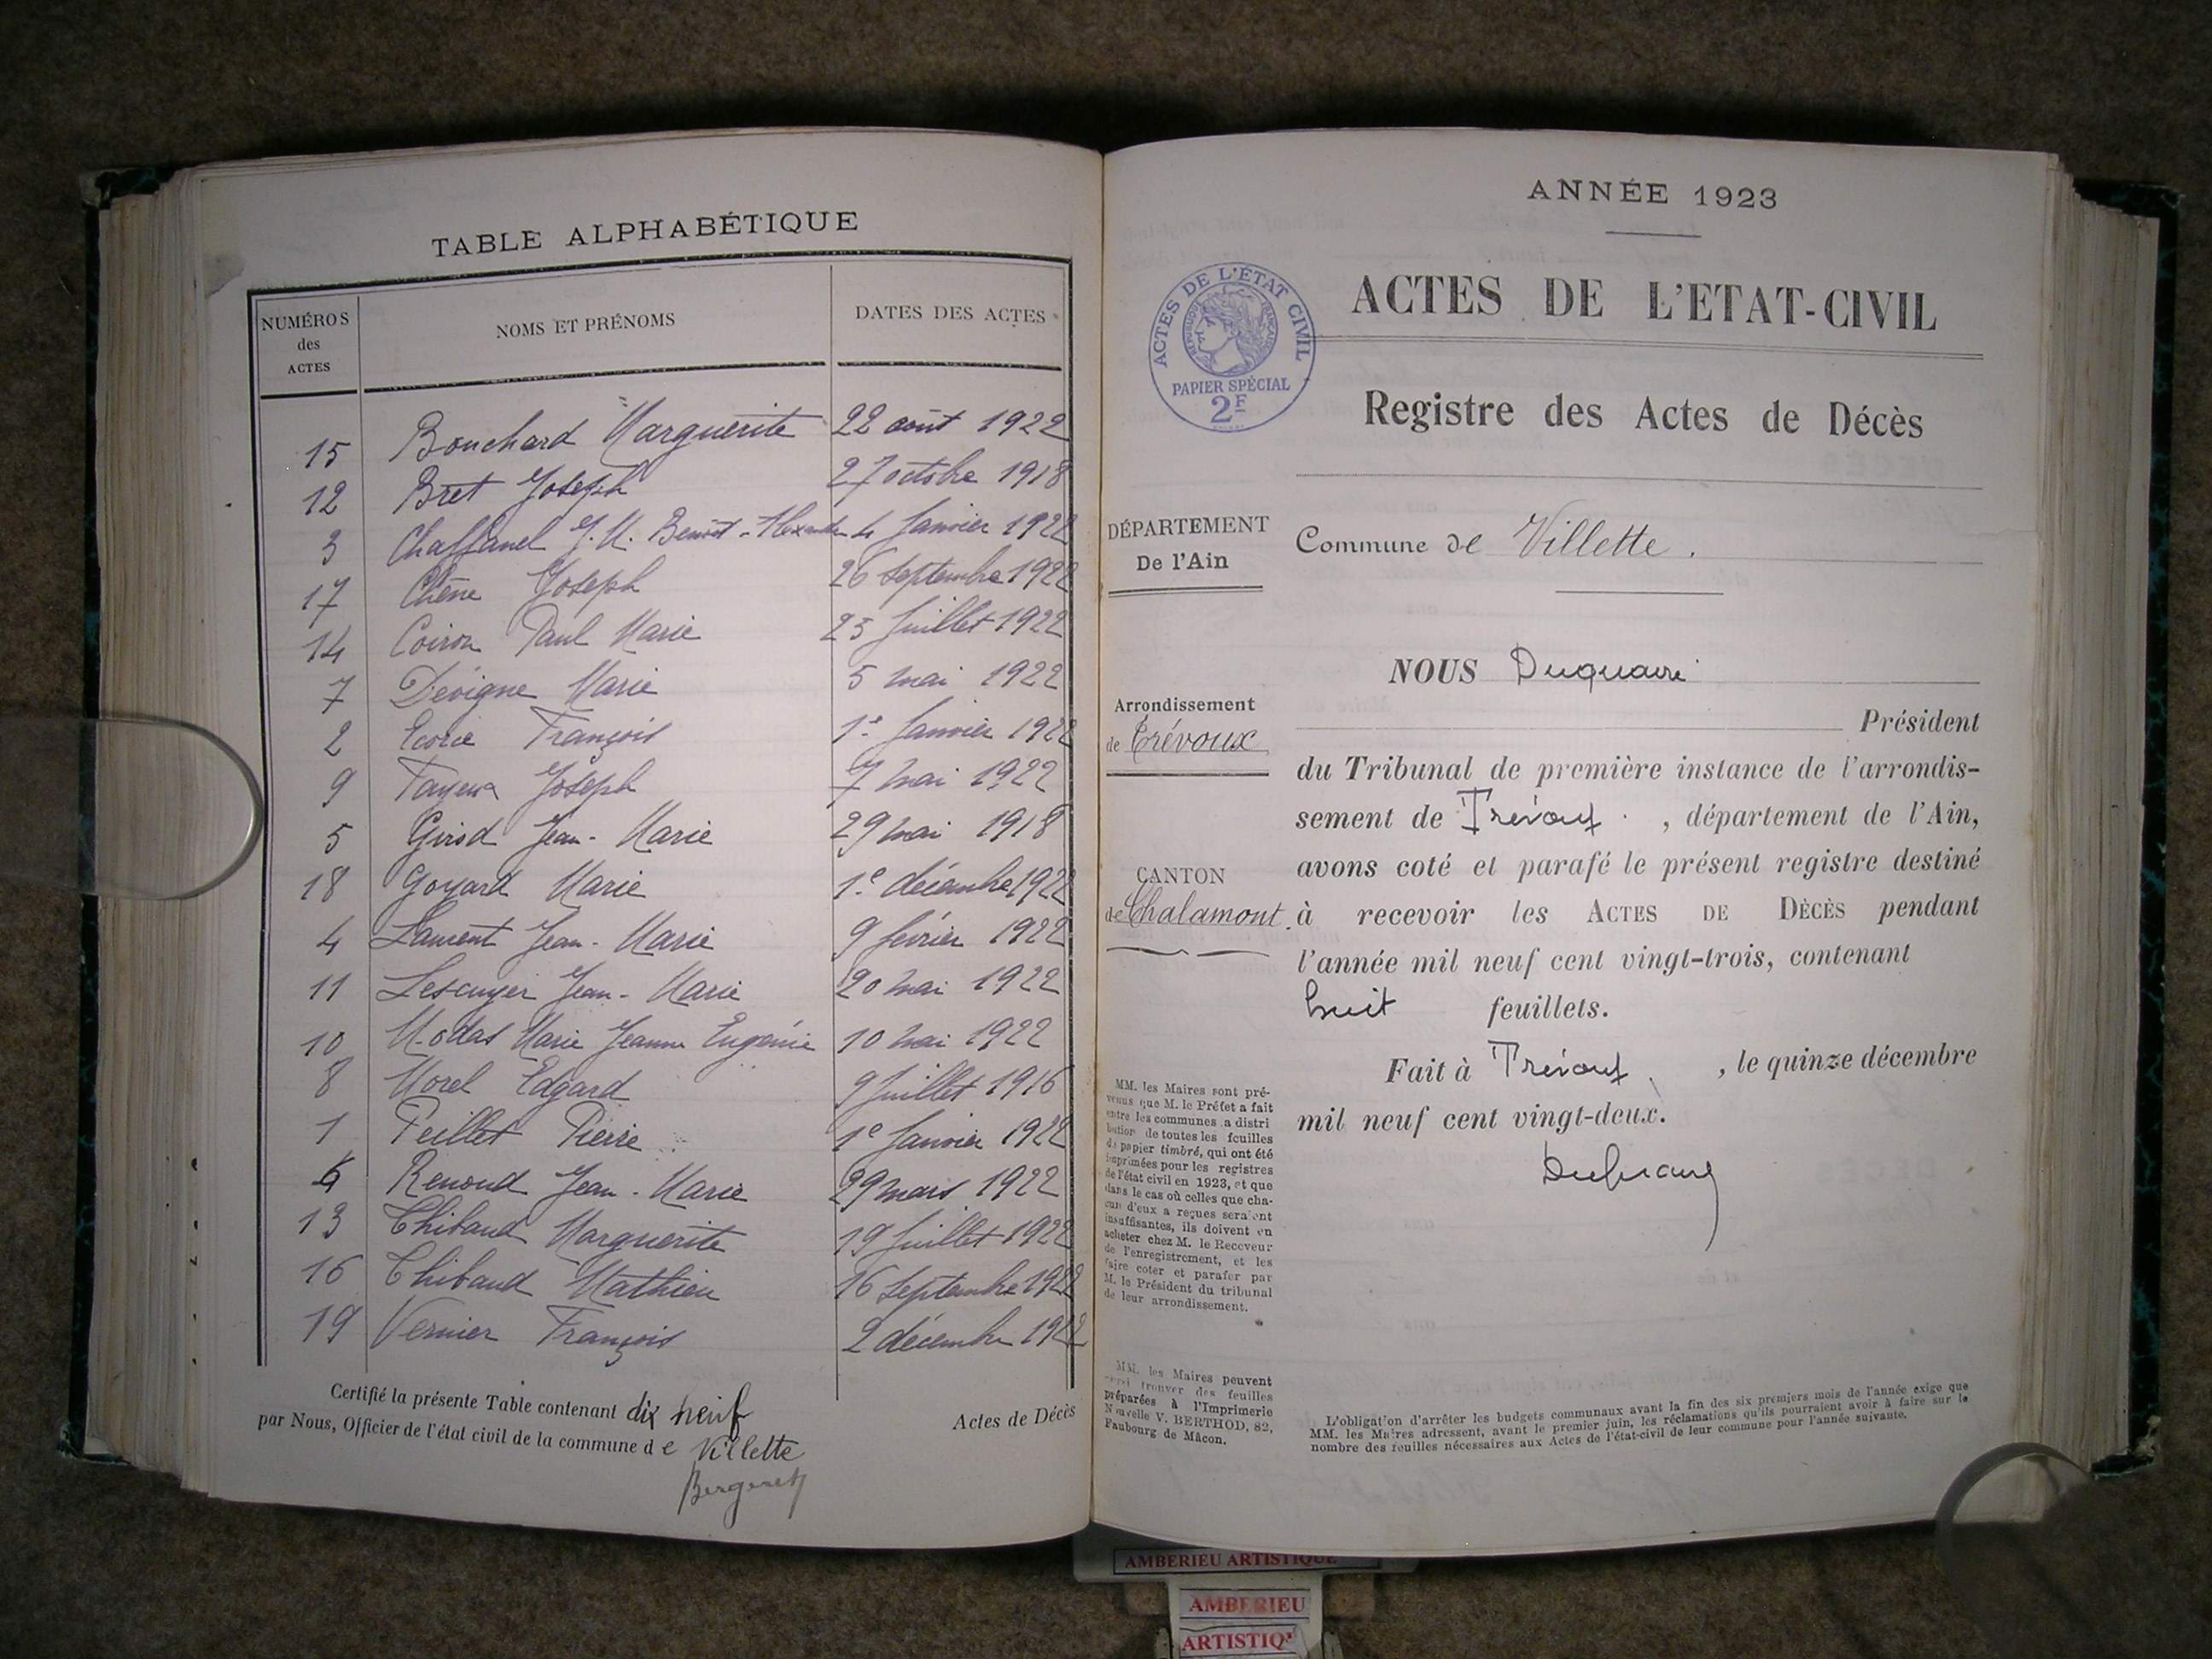 TABLE ALPHABÉTIQUE
NUMÉROS des ACTES NOMS ET PRÉNOMS DATES DES ACTES
15 Bouchard Marguerite 22 août 1922
12 Bret Joseph 27 octobre 1918
3 Chaffanel J. M. Benoit-Alexandre 4 Janvier 1922
17 Chêne Joseph 26 septembre 1922
14 Coiron Paul Marie 23 Juillet 1922
7 Dévigne Marie 5 mai 1922
2 François 1e Janvier 1922
9 Joseph 7 mai 1922
5 Girod Jean-Marie 29 mai 1918
18 Goyard Marie 1e décembre 1922
4 Laurent Jean-Marie 9 février 1922
11 Lescuyer Jean-Marie 20 mai 1922
10 Marie Jeanne Eugénie 10 mai 1922
8 Morel Edgard 9 Juillet 1916
1 Peillet Pierre 1e Janvier 1922
6 Renoud Jean-Marie 29 mars 1922
13 Thibaud Marguerite 19 Juillet 1922
16 Thibaud Mathieu 16 septembre 1922
19 Vernier François 2 décembre 1922
Certifié la présente Table contenant dix neuf Actes de Décès
par Nous, Officier de l'état civil de la commune de Villette
ANNÉE 1923
ACTES DE L'ÉTAT CIVIL
RÉPUBLIQUE FRANÇAISE
PAPIER SPÉCIAL
2F
ACTES DE L'ETAT-CIVIL
Registre des Actes de Décès
DÉPARTEMENT
De l'Ain
Commune de Villette.
Arrondissement
de Trévoux
CANTON
de Chalamont.
NOUS Duquaire
Président
du Tribunal de première instance de l'arrondis-
sement de Trévoux, département de l'Ain,
avons coté et parafé le présent registre destiné
à recevoir les ACTES DE DÉCÈS pendant
l'année mil neuf cent vingt-trois, contenant
huit feuillets.
Fait à Trévoux, le quinze décembre
mil neuf cent vingt-deux.
MM. les Maires sont pré-
venus que M. le Préfet a fait
entre les communes a distri
bution de toutes les feuilles
du papier timbré, qui ont été
imprimées pour les registres
de l'état civil en 1923, et que
dans le cas où celles que cha-
cun d'eux a reçues seraient
insuffisantes, ils doivent en
acheter chez M. le Receveur
de l'enregistrement, et les
faire coter et parafer par
M. le Président du tribunal
de leur arrondissement.
MM. les Maires peuvent
trouver des feuilles
préparées à l'Imprimerie
Nouvelle V. BERTHOD, 82,
Faubourg de Mâcon.
L'obligation d'arrêter les budgets communaux avant la fin des six premiers mois de l'année exige que
MM. les Maires adressent, avant le premier juin, les réclamations qu'ils pourraient avoir à faire sur le
nombre des feuilles nécessaires aux Actes de l'état-civil de leur commune pour l'année suivante.
AMBERIEU ARTISTIQUE
AMBERIEU
ARTISTIQ